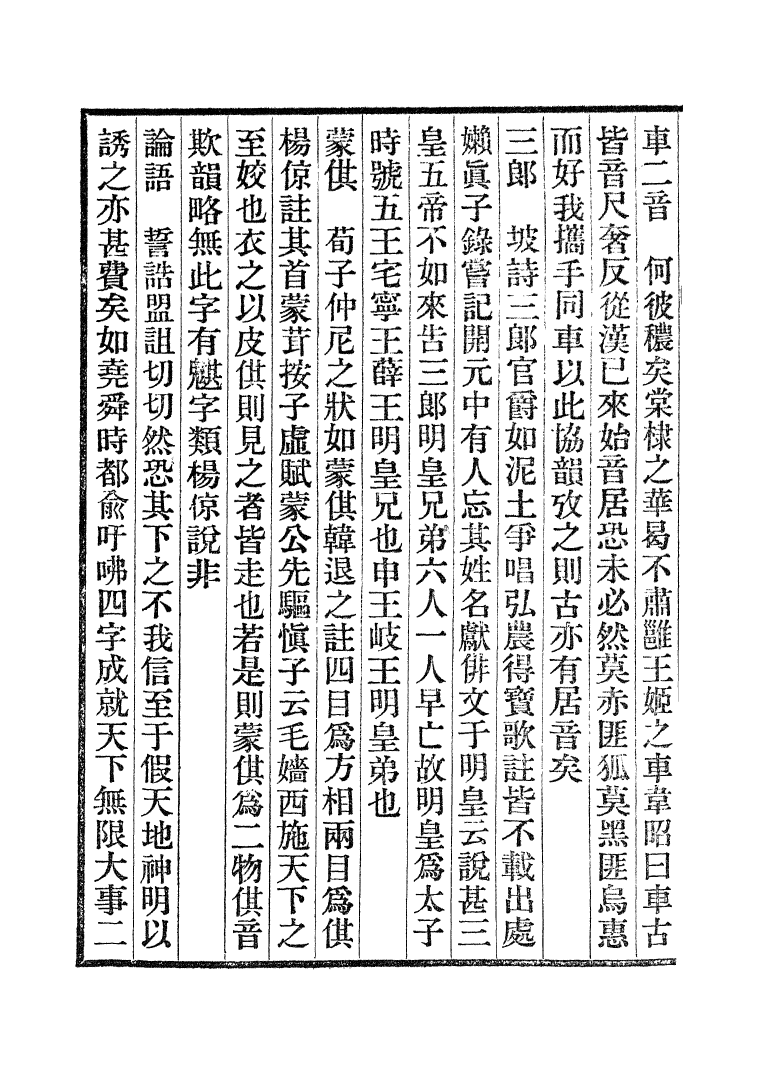 車二音　何彼穠矣棠棣之華曷不肅雝王姬之車韋昭曰車古
皆音尺奢反從漢已來始音居恐未必然莫赤匪狐莫黑匪烏惠
而好我攜手同車以此協韻攷之則古亦有居音矣
三郎　坡詩三郎官爵如泥土爭唱弘農得寶歌註皆不載出處
嬾眞子錄嘗記開元中有人忘其姓名獻俳文于明皇云說甚三
皇五帝不如來告三郎明皇兄弟六人一人早亡故明皇爲太子
時號五王宅寧王薛王明皇兄也申王岐王明皇弟也
蒙倛　荀子仲尼之狀如蒙倛韓退之註四目爲方相兩目爲倛
楊倞註其首蒙茸按子虛賦蒙公先驅愼子云毛嬙西施天下之
至姣也衣之以皮倛則見之者皆走也若是則蒙倛爲二物倛音
欺韻略無此字有魌字類楊倞說非
論語　誓誥盟詛切切然恐其下之不我信至于假天地神明以
誘之亦甚費矣如堯舜時都兪吁咈四字成就天下無限大事二